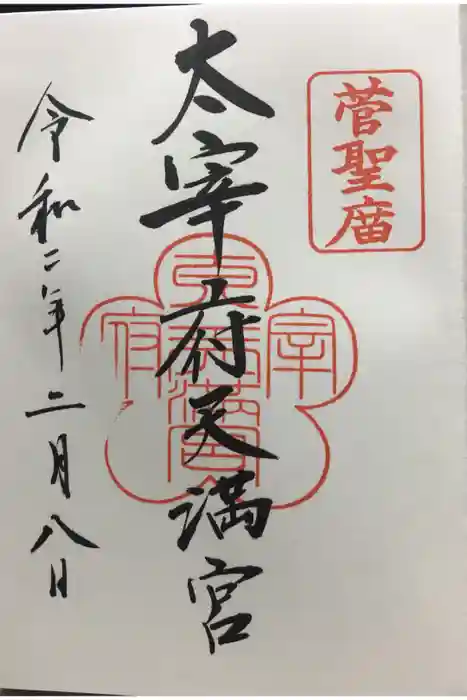 菅聖廟
太宰府天満宮
令和二年二月八日